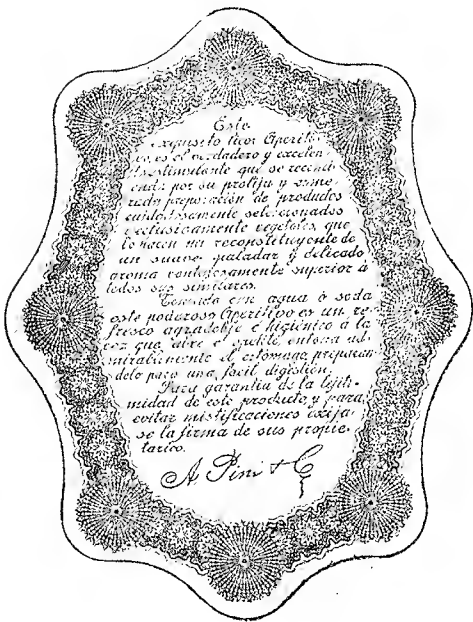 Este
exquisito licor Aperiti-
vo, es el verdadero y excelen-
te estimulante que se recomi-
enda por su prolija y esme-
rada preparación de productos
cuidadosamente seleccionados
y exclusivamente vegetales, que
lo hacen un reconstituyente de
un suave paladar y delicado
aroma ventajosamente superior á
todos sus similares.
Tomado con agua ó soda
este poderoso Aperitivo es un re-
fresco agradable é higiénico á la
vez que abre el apetito, entona ad-
mirablemente el estómago preparan-
dolo para una fácil digestion.
Para garantia de la lejiti-
midad de este producto, y para
evitar mistificaciones exija-
se la firma de sus propie-
tarios.
A. Pini & C